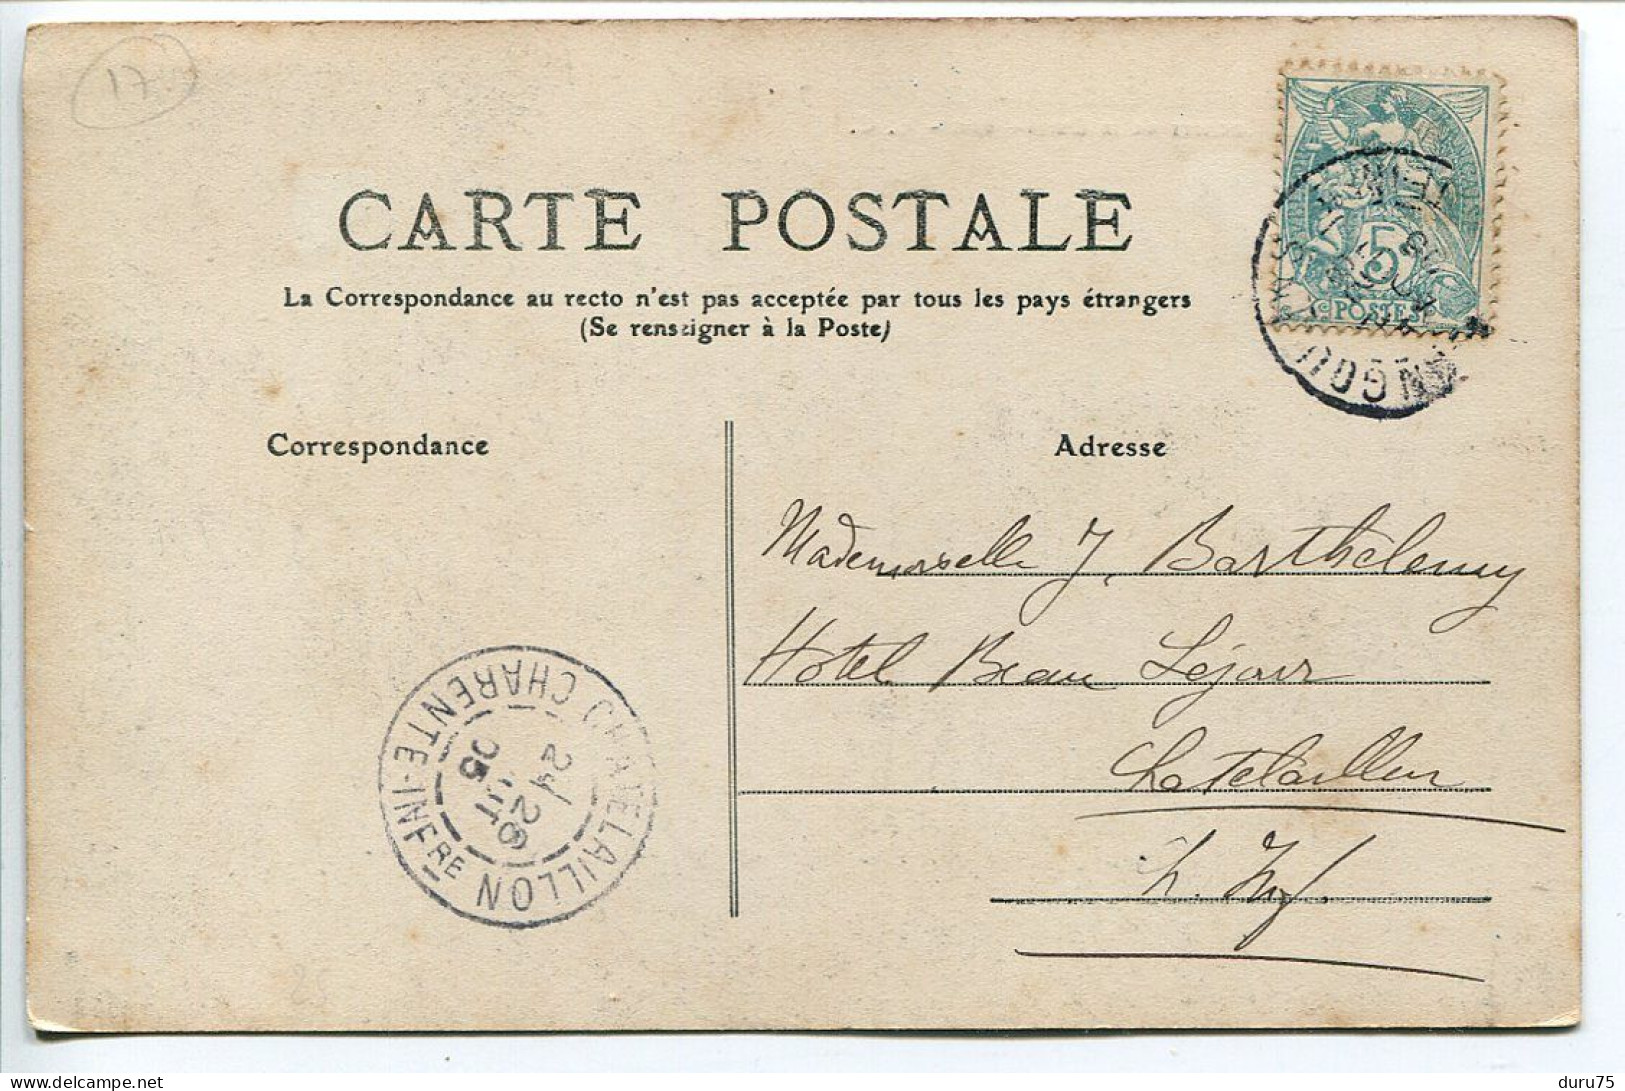 17
CARTE POSTALE
La Correspondance au recto n'est pas acceptée par tous les pays étrangers
(Se renseigner à la Poste)
5
POSTES
ANGOU
Correspondance
Adresse
Mademoiselle J. Barthélemy
Hôtel Beau Séjour
Chatelaillon
Ch. Inf.
CHATELAILLON
CHARENTE-INFRE
26
05
25
delcampe.net
duru75